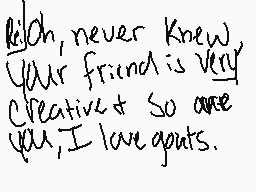 Re: Oh, never knew,
your friend is very
creative + so are
you, I love goats.